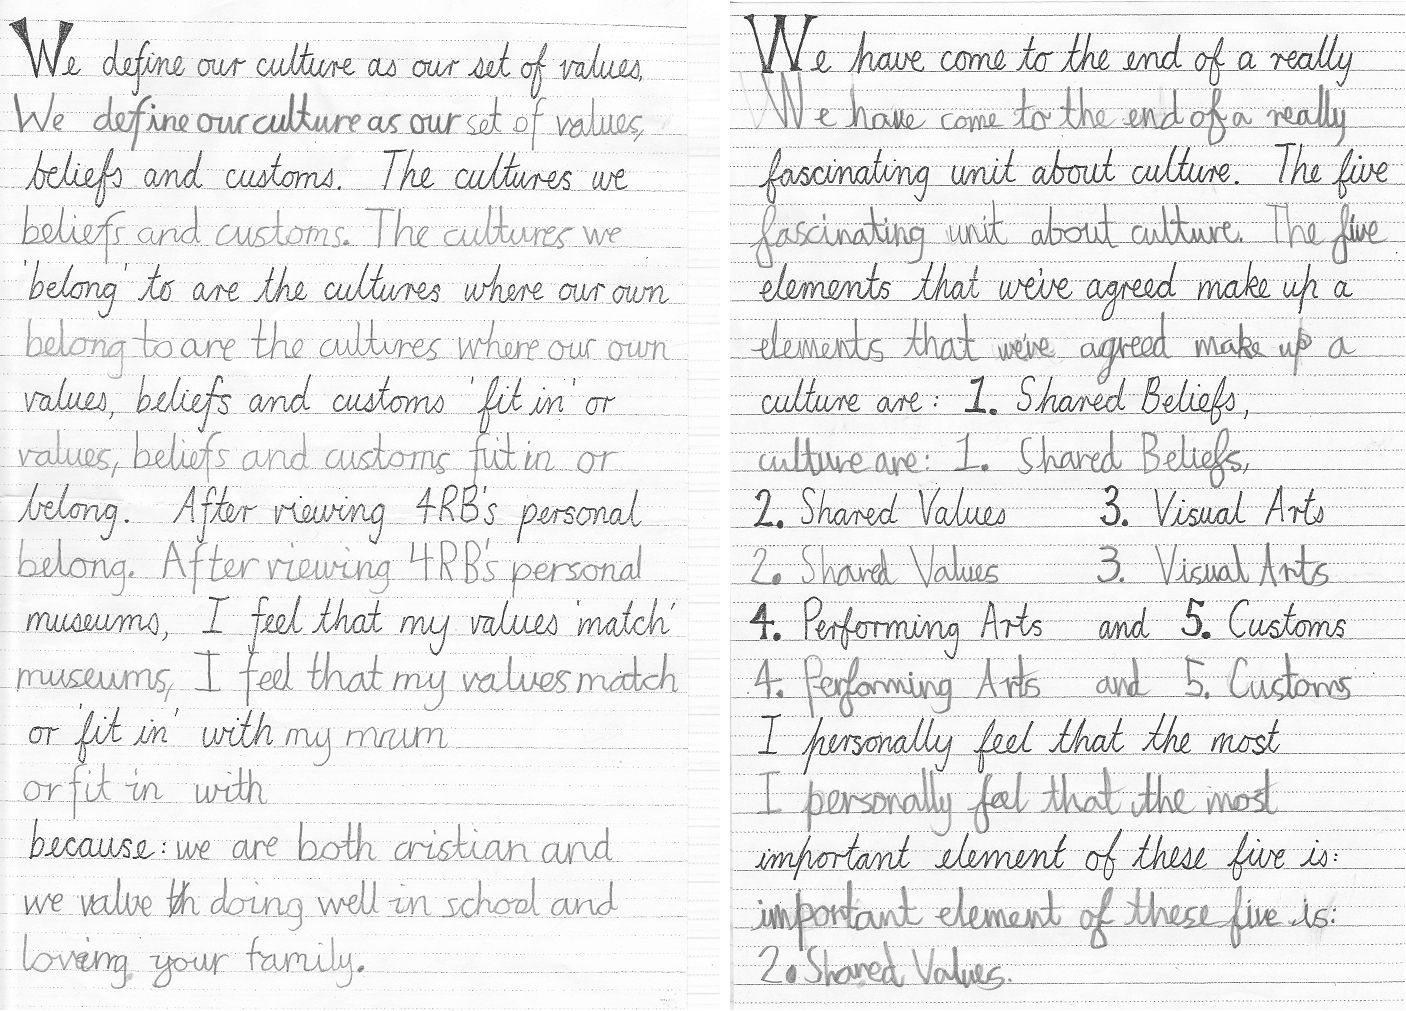 We define our culture as our set of values,
We define our culture as our set of values,
beliefs and customs. The cultures we
beliefs and customs. The cultures we
'belong' to are the cultures where our own
belong to are the cultures where our own
values, beliefs and customs 'fit in' or
values, beliefs and customs fit in or
belong. After viewing 4RB's personal
belong. After viewing 4RB's personal
museums, I feel that my values 'match'
museums, I feel that my values match
or 'fit in' with my mum
or fit in with
because: we are both cristian and
we value th doing well in school and
loveing your family.
We have come to the end of a really
We have come to the end of a really
fascinating unit about culture. The five
fascinating unit about culture. The five
elements that we've agreed make up a
elements that we've agreed make up a
culture are: 1. Shared Beliefs,
culture are: 1. Shared Beliefs,
2. Shared Values 3. Visual Arts
2. Shared Values 3. Visual Arts
4. Performing Arts and 5. Customs
4. Performing Arts and 5. Customs
I personally feel that the most
I personally feel that the most
important element of these five is:
important element of these five is:
2. Shared Values.